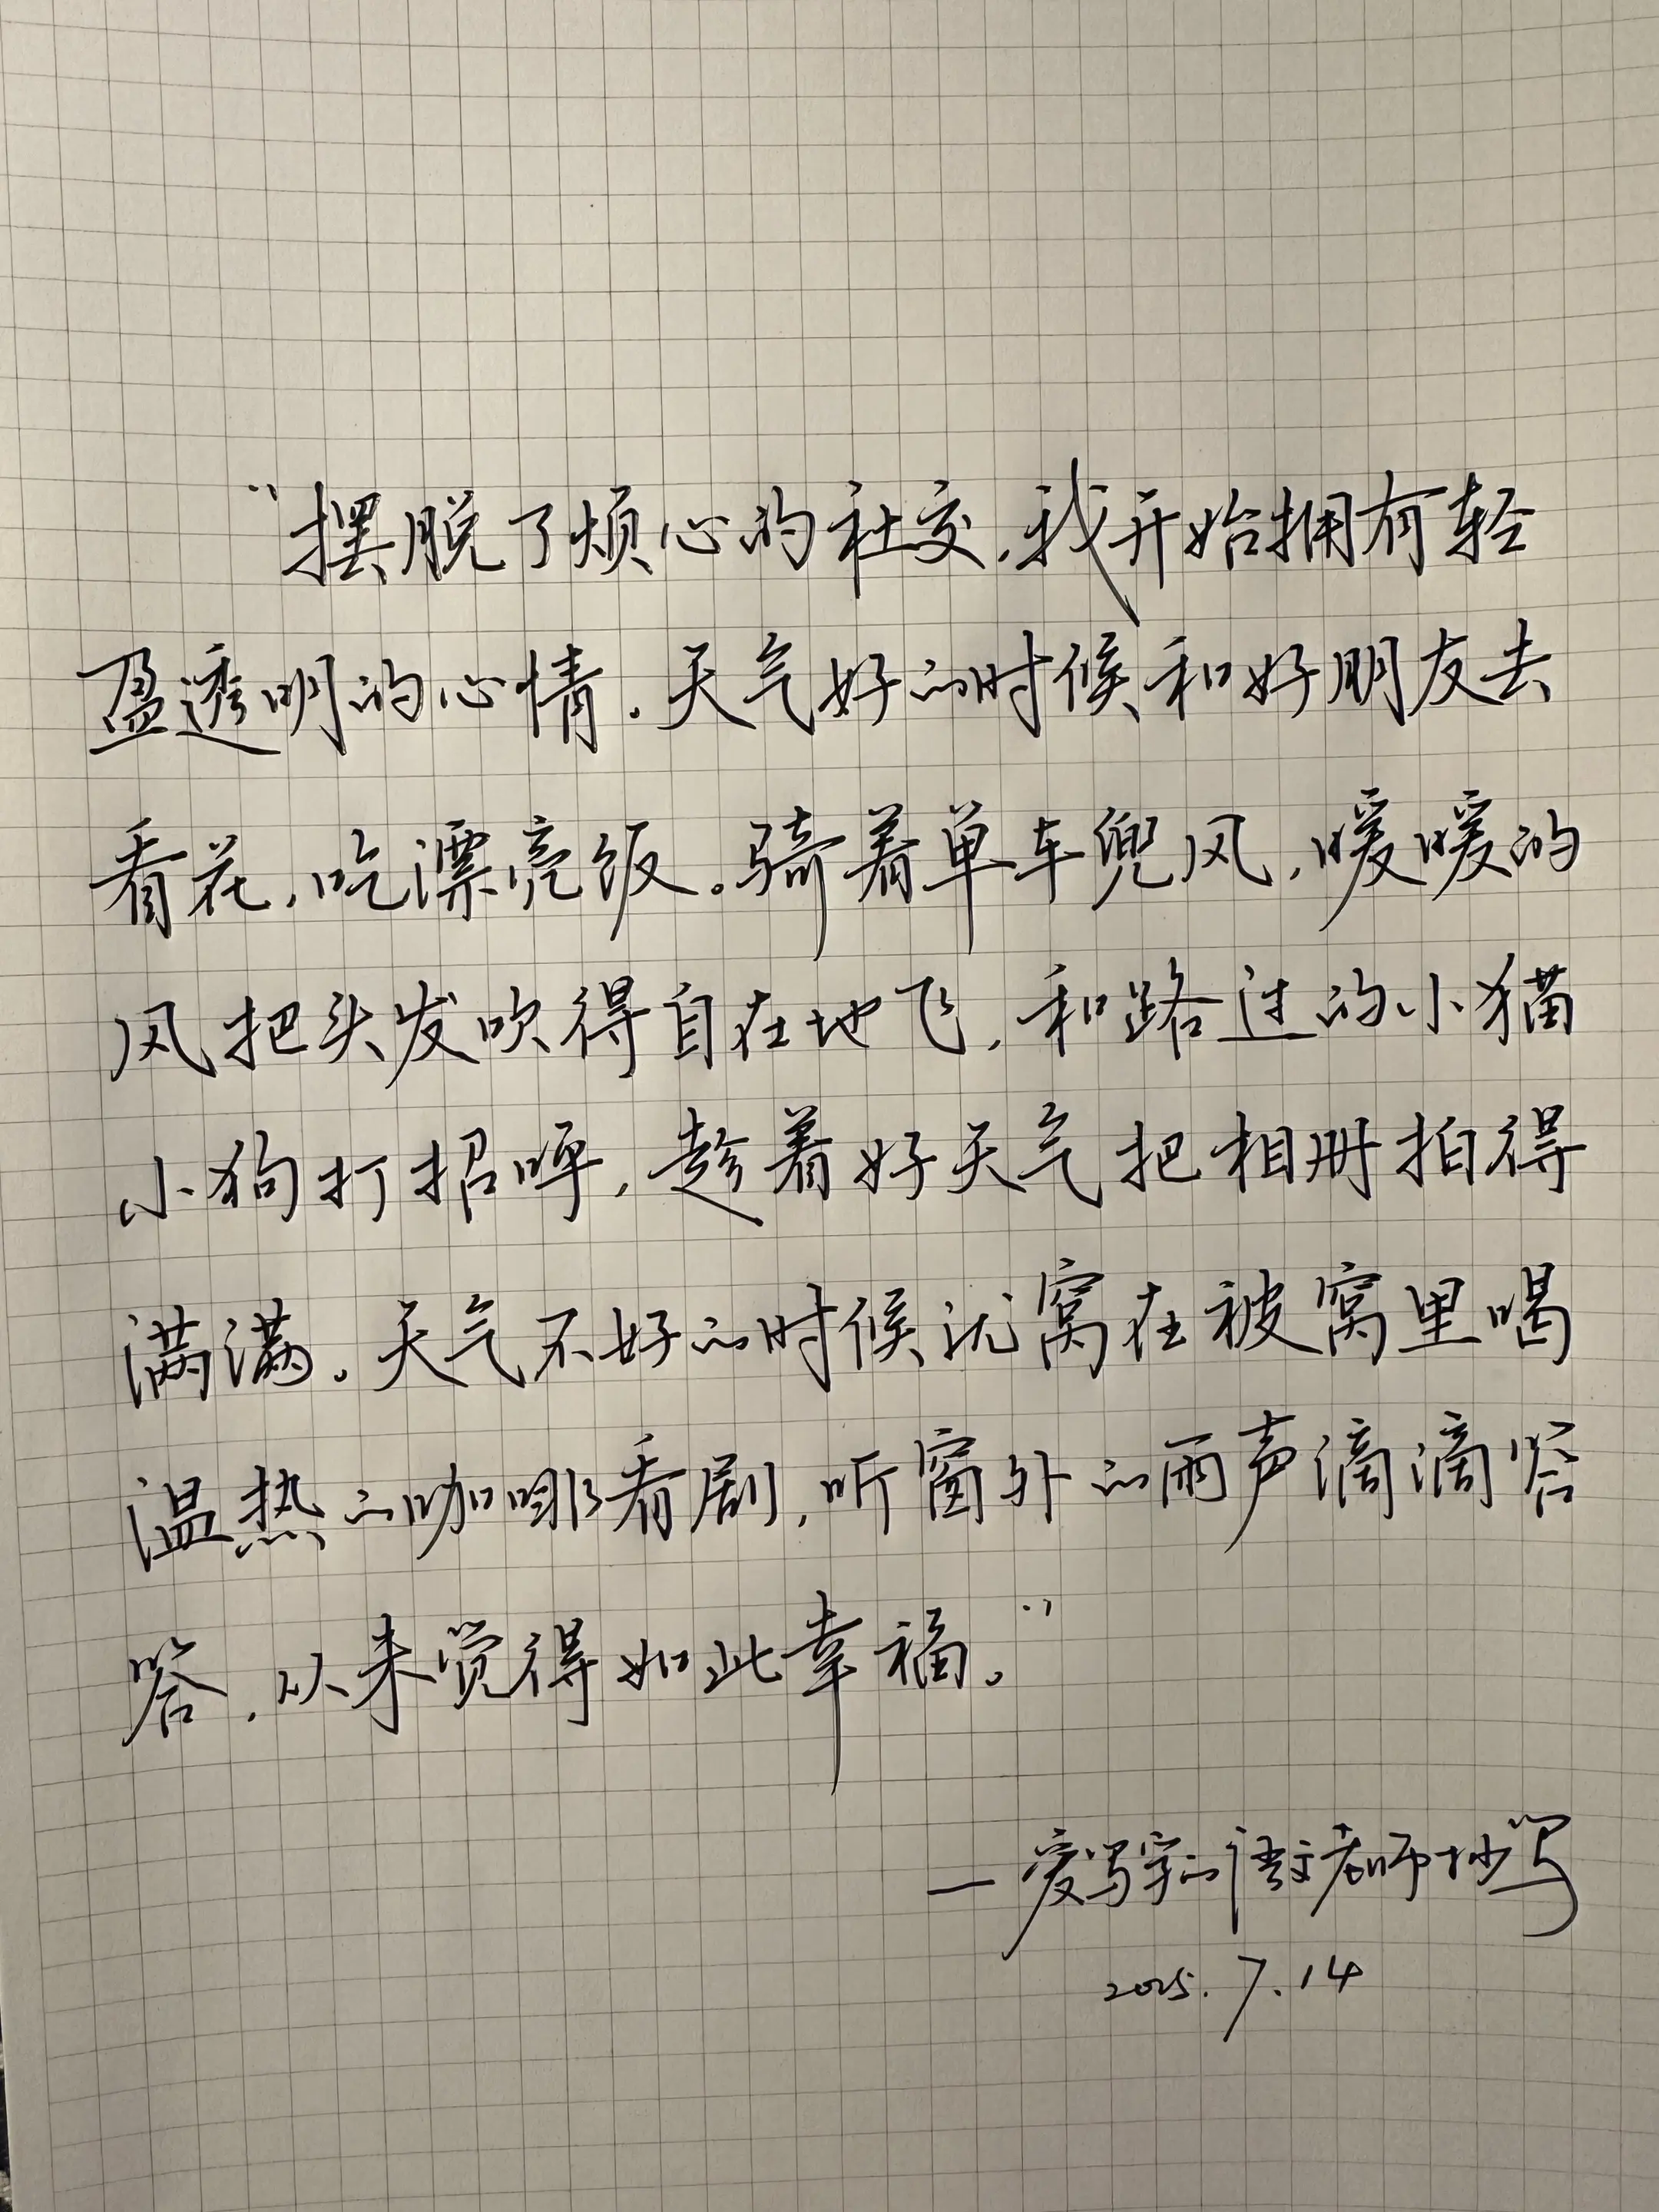 “摆脱了烦心的社交,我开始拥有轻
盈透明的心情.天气好的时候和好朋友去
看花,吃漂亮饭。骑着单车兜风,暖暖的
风把头发吹得自在地飞,和路过的小猫
小狗打招呼,趁着好天气把相册拍得
满满。天气不好的时候就窝在被窝里喝
温热的咖啡看剧,听窗外的雨声滴滴答
答,从来觉得如此幸福。”
一爱写字的语文老师抄写
2025.7.14